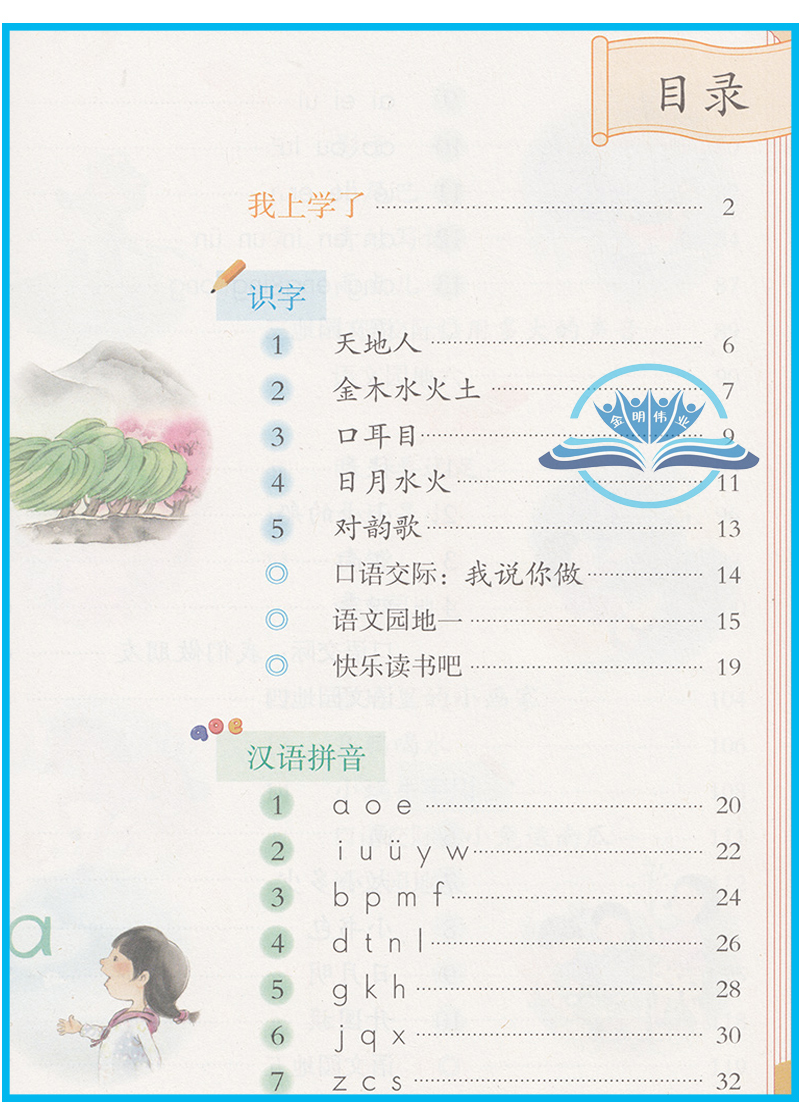 目录
我上学了 2
识字
1 天地人 6
2 金木水火土 7
金明伟业
3 口耳目 9
4 日月水火 11
5 对韵歌 13
◎ 口语交际：我说你做 14
◎ 语文园地一 15
◎ 快乐读书吧 19
aoe
汉语拼音
1 a o e 20
2 i u ü y w 22
3 b p m f 24
4 d t n l 26
a
5 g k h 28
6 j q x 30
7 z c s 32